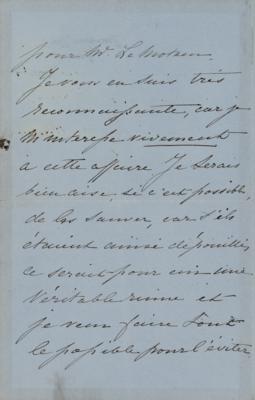 pour Mr. Le
Je vous en suis très
reconnaissante, car je
m'intéresse vivement
à cette affaire Je serais
bien aise, si c'est possible,
de les sauver, car s'ils
étaient ainsi dépouillés,
ce serait pour une
véritable ruine et
je veux faire tout
le possible pour l'éviter.